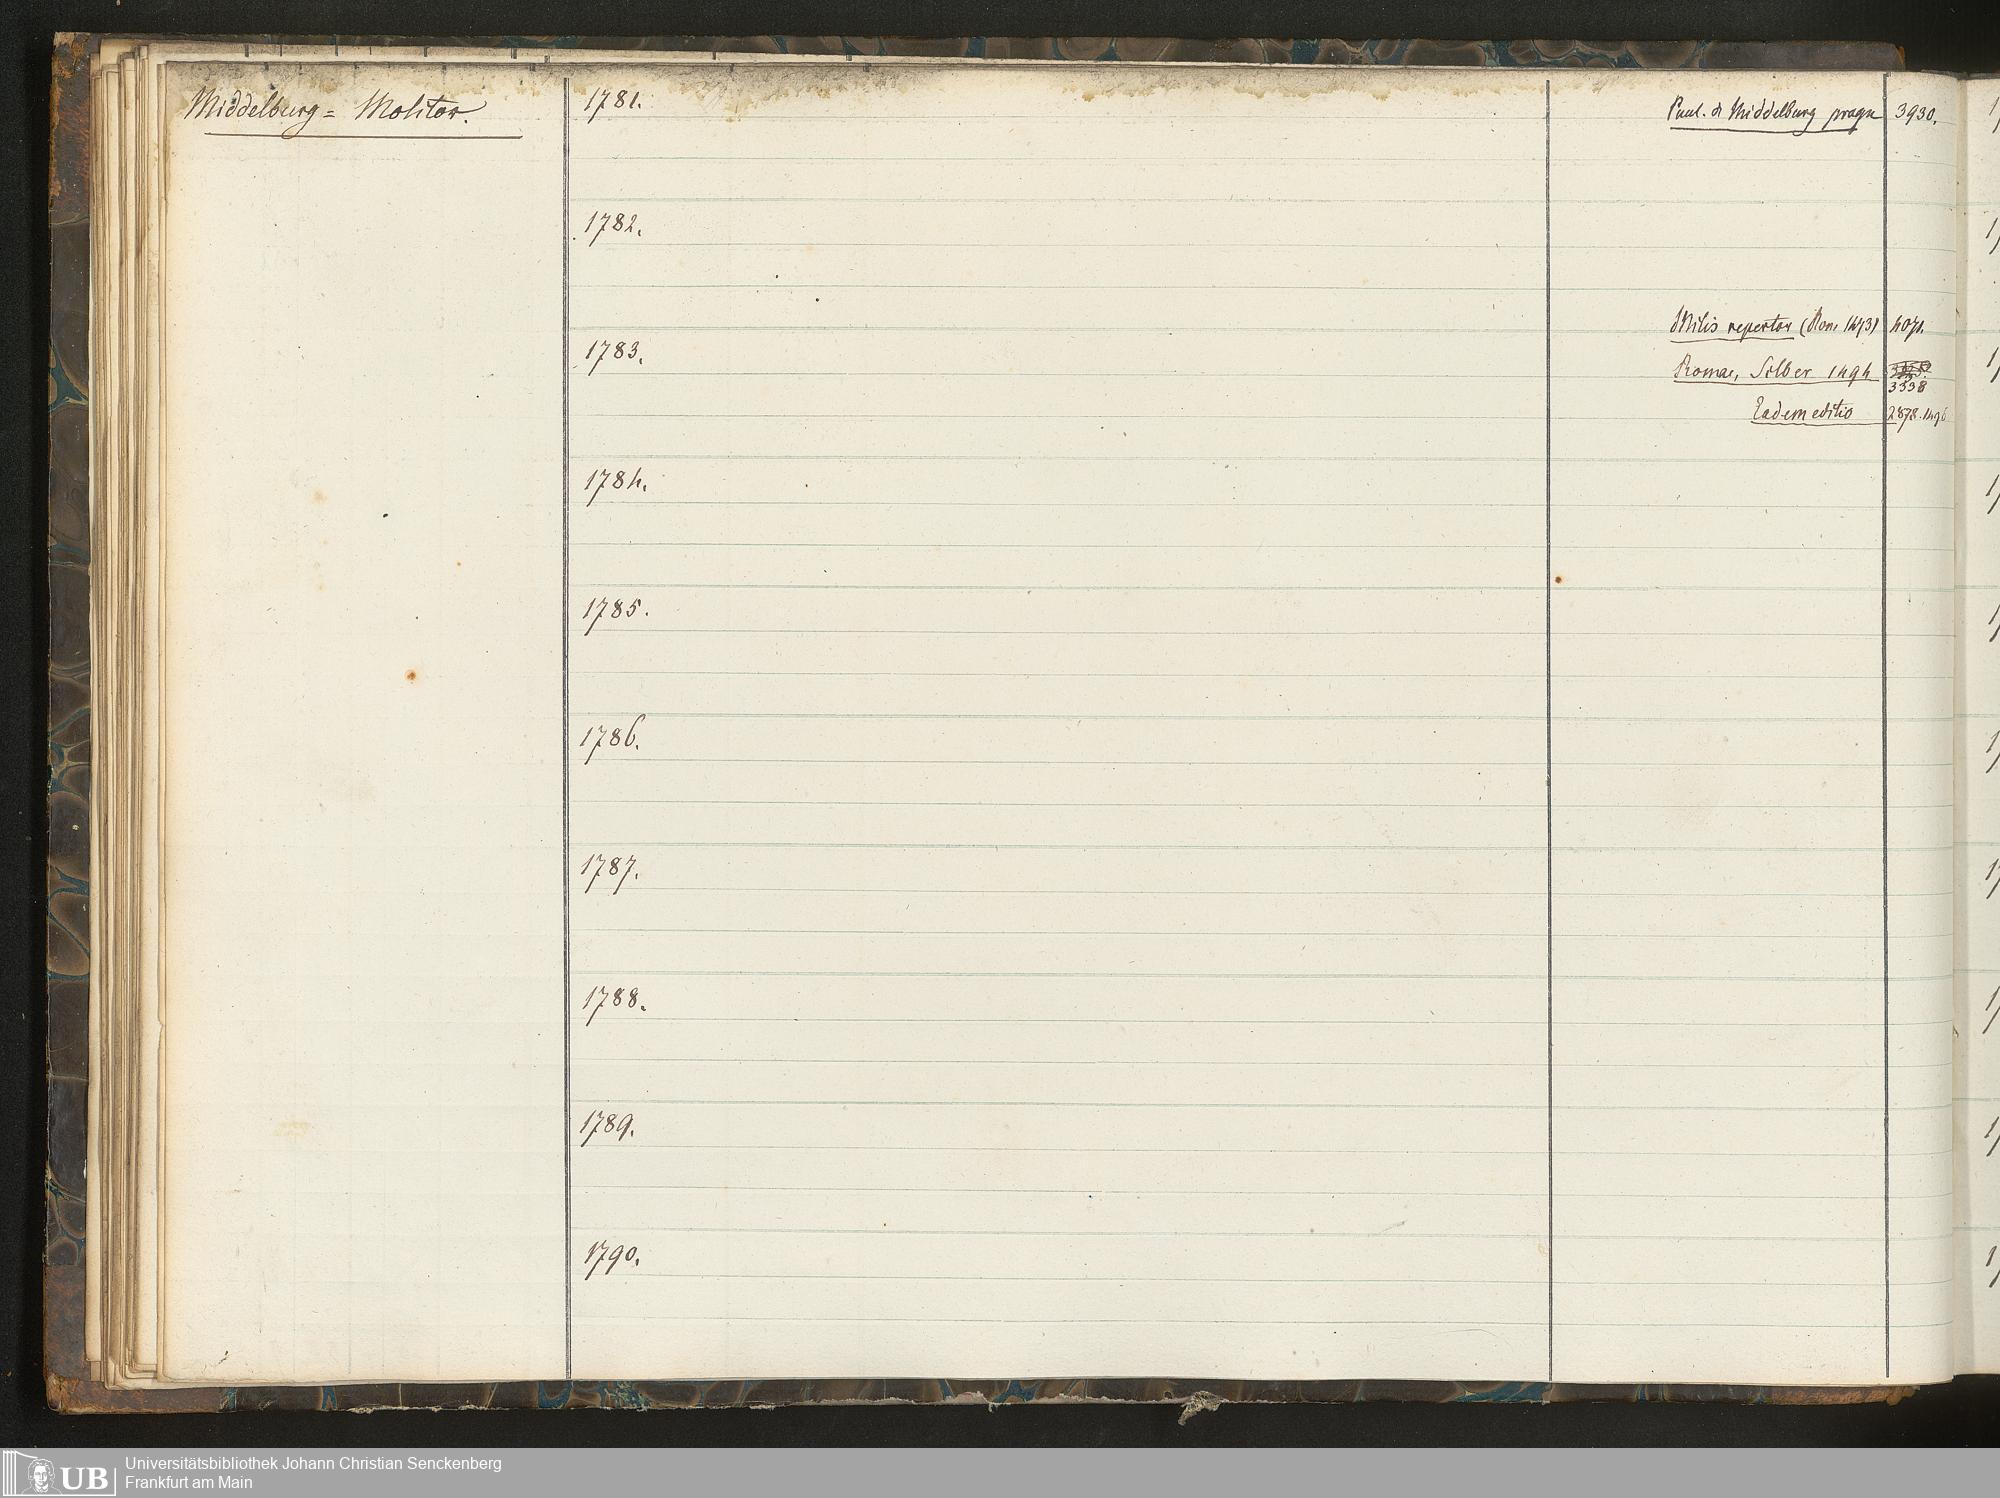 Middelburg = Molitor.
1781.
Paul. d Middelburg progn 3930.
1782.
Milis repertor (Rom 1473) 4071.
1783.
Romae, Silber 1494
3338
Eadem editio 2878.
1784.
1785.
1786.
1787.
1788.
1789.
1790.
UB
Universitätsbibliothek Johann Christian Senckenberg
Frankfurt am Main